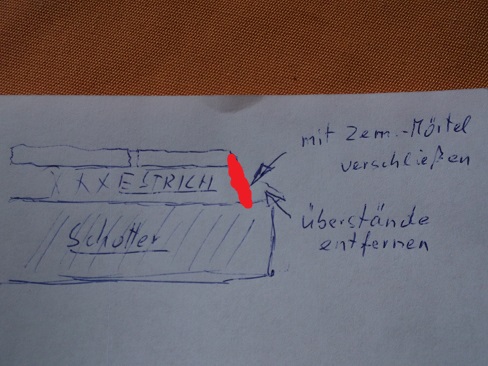 mit Zem.-Mörtel
verschließen
XXX ESTRICH
Schotter
überstände
entfernen